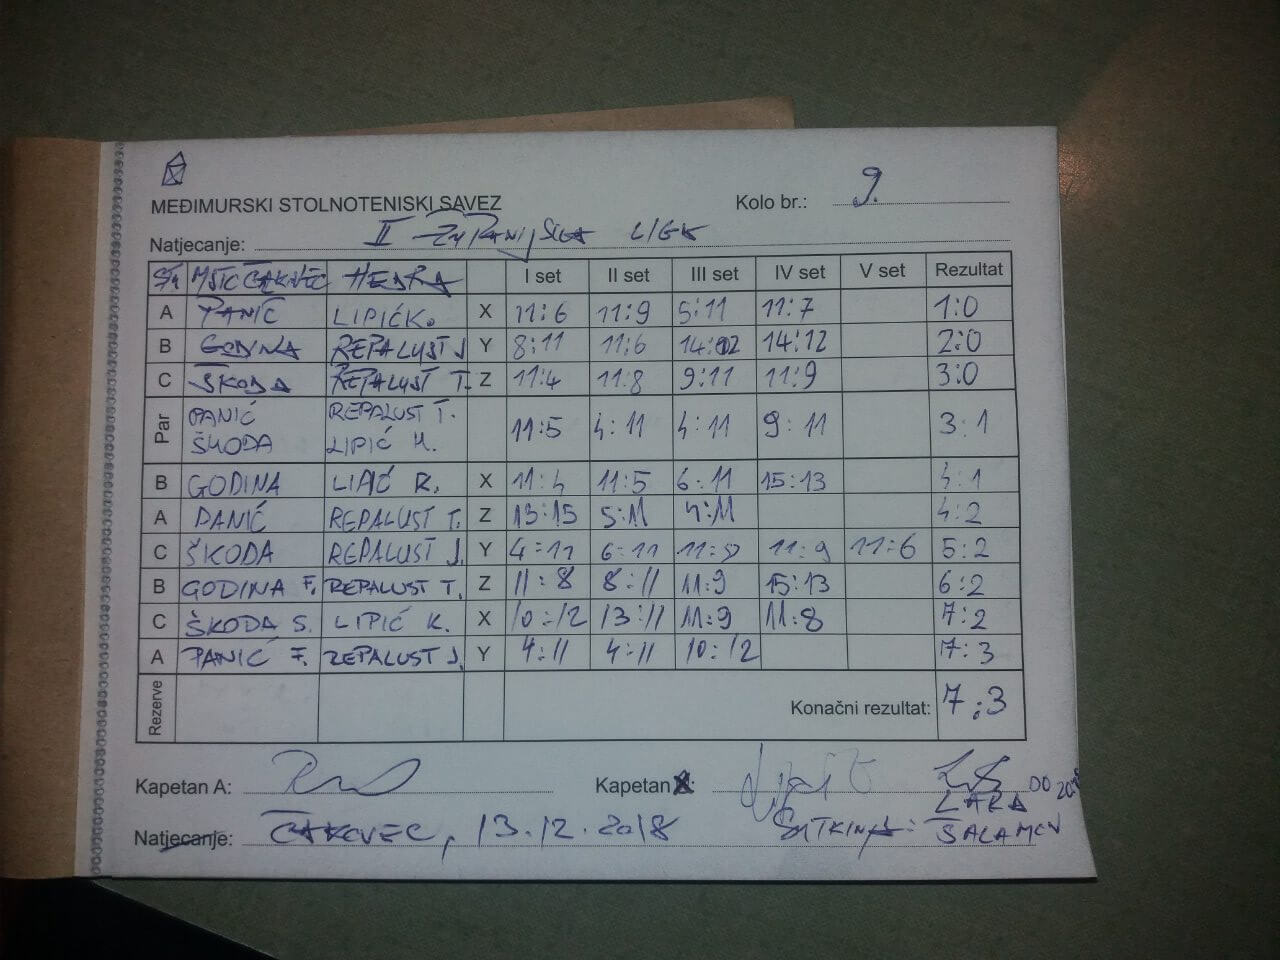 MEĐIMURSKI STOLNOTENISKI SAVEZ Kolo br.: 9.
Natjecanje: II ŽUPANIJSKA LIGA
MSTC ČAKOVEC HEDRA I set II set III set IV set V set Rezultat
A PANIĆ LIPIĆ K. X 11:6 11:9 5:11 11:7 1:0
B GODINA REPALUST J Y 8:11 11:6 14:12 14:12 2:0
C ŠKODA REPALUST T. Z 11:4 11:8 9:11 11:9 3:0
Par PANIĆ REPALUST T. 11:5 4:11 4:11 9:11 3:1
ŠKODA LIPIĆ K.
B GODINA LIPIĆ K. X 11:4 11:5 6:11 15:13 4:1
A PANIĆ REPALUST T. Z 13:15 5:11 4:11 4:2
C ŠKODA REPALUST J. Y 4:11 6:11 11:9 11:9 11:6 5:2
B GODINA F. REPALUST T. Z 11:8 8:11 11:9 15:13 6:2
C ŠKODA S. LIPIĆ K. X 10:12 13:11 11:9 11:8 7:2
A PANIĆ F. REPALUST J. Y 4:11 4:11 10:12 7:3
Rezerve Konačni rezultat: 7:3
Kapetan A: Kapetan
LARA
Natjecanje: ČAKOVEC, 13.12.2018 SUTKINJA: SALAMON